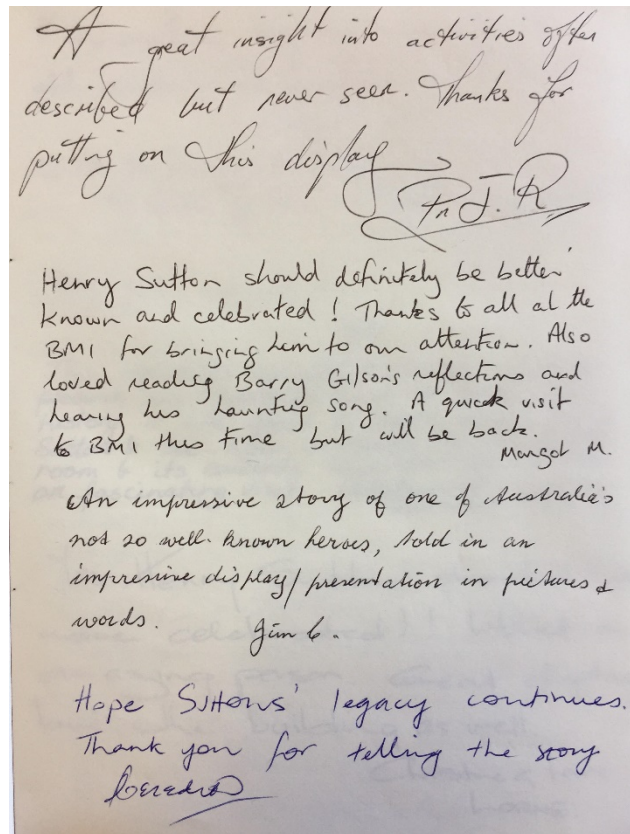 A great insight into activities often
described but never seen. Thanks for
putting on this display
J. R
Henry Sutton should definitely be better
known and celebrated! Thanks to all at the
BMI for bringing him to our attention. Also
loved reading Barry Gilson's reflections and
hearing his haunting song. A quick visit
to BMI this time but will be back.
Margot M.
An impressive story of one of Australia's
not so well-known heroes, told in an
impressive display/presentation in pictures &
words. Jim C.
Hope Suttons' legacy continues.
Thank you for telling the story